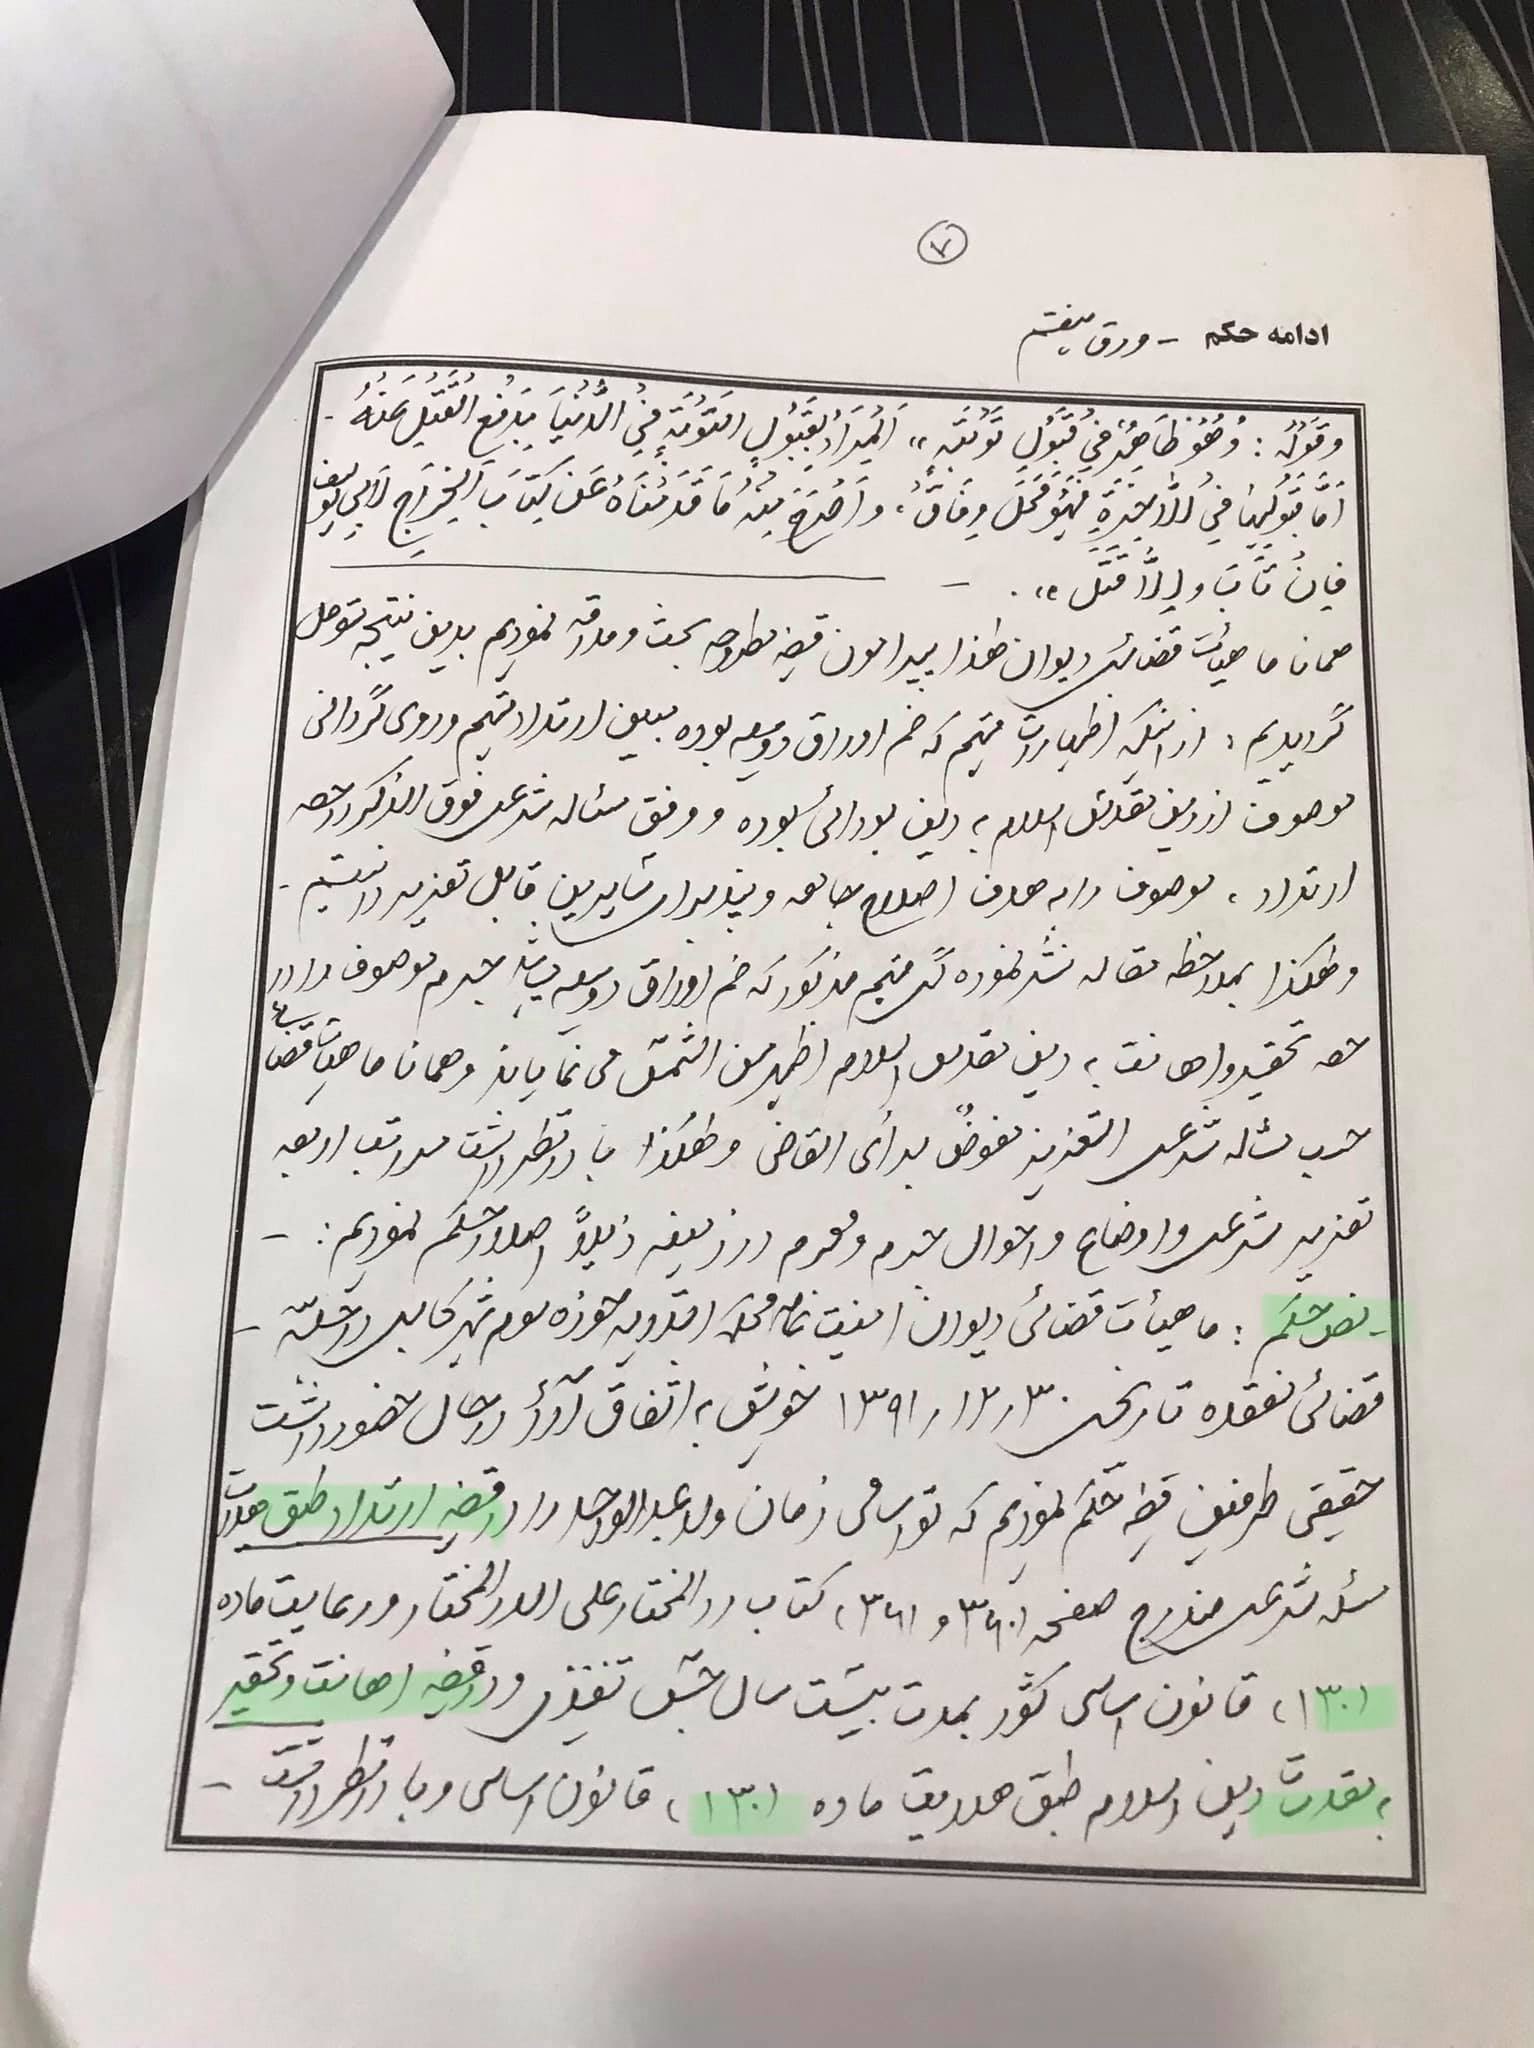 ۷
ادامه حکم - ورق هفتم
وَقَوْلُهُ : وَهُوَ ظَاهِرٌ فِي قُبُولِ تَوْبَتِهِ ،، اَلْمُرَادُ بِقَبُولِ التَّوْبَةِ فِي الدُّنْيَا بِدَفْعِ الْقَتْلِ عَنْهُ -
اَمَّا قَبُولُهَا فِي الْآخِرَةِ فَهُوَ مَحَلُّ وِفَاقٍ، وَاَصْرَحُ مِنْهُ مَا قَدَّمْنَاهُ عَنْ كِتَابِ الْخِرَاجِ لِاَبِي يُوسُف
فَاِنْ تَابَ وَاِلَّا قُتِلَ ،، . -
همانا ما هیأت قضائی دیوان هٰذا پیرامون قضیه مطروحه بحث و مداقه نمودیم بدین نتیجه متوصل
گردیدیم ، از اینکه اظهارات متهم که ضم اوراق دوسیه بوده مبین ارتداد متهم و روی گردانی
موصوف از دین مقدس اسلام به دین بودائی بوده و وفق مسئاله شرعی فوق الذکر در حصه
ارتداد ، موصوف را به هدف اصلاح جامعه و پند برای سایرین قابل تعزیر دانستیم -
و هٰکذا بملاحظه مقاله نشر نموده گی متهم مذکور که ضم اوراق دوسیه میباشد جرم موصوف را در
حصه تحقیر و اهانت به دین مقدس اسلام اظهر من الشمس می نمایاند و همانا ما هیأت قضائی
حسب مسئاله شرعی التعزیر مفوضٌ برأی القاضی و هٰکذا با در نظر داشت مراتب اربعه
تعزیر شرعی و اوضاع و احوال جرم و مجرم در زمینه ذیلاً اصدار حکم نمودیم : -
- نص حکم : ما هیأت قضائی دیوان امنیت عامه محکمه ابتدائیه حوزه سوم شهر کابل در جلسه -
قضائی منعقده تاریخی ۱۳۹۱/۱۲/۳۰ خویش به اتفاق آراء در حال حضور داشت
حقیقی طرفین قضیه حکم نمودیم که تو اسامی زمان ولد عبدالواحد را در قضیه ارتداد طبق هدایت
مسئله شرعی مندرج صفحه (۳۶۰ و ۳۶۱) کتاب رد المختار علی الدر المختار و رعایت ماده
(۱۳۰) قانون اساسی کشور بمدت بیست سال حبس تنفیذی و در قضیه اهانت و تحقیر
به مقدسات دین اسلام طبق هدایت ماده (۱۳۰) قانون اساسی و با در نظر داشت -